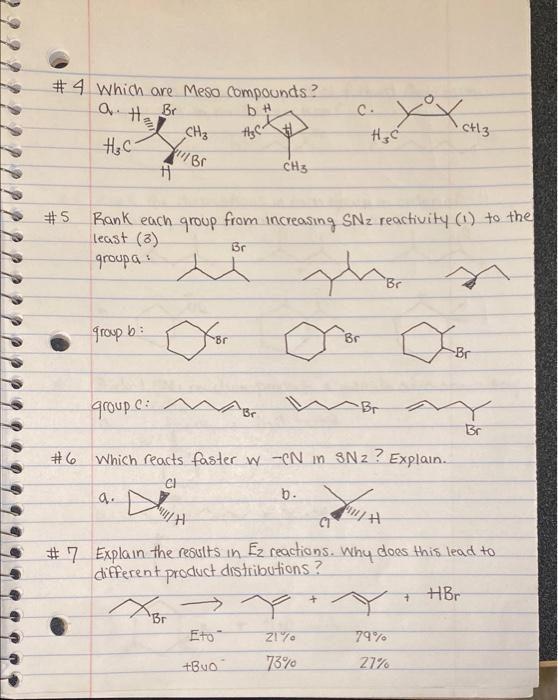 #4 Which are Meso compounds?
a. H Br CH3 H3C Br H
b H H3C H CH3
c. O H3C CH3
#5 Rank each group from increasing SN2 reactivity (1) to the
least (3)
group a: Br Br
group b: Br Br Br
group c: Br Br Br
#6 Which reacts faster w -CN in SN2? Explain.
a. Cl H b. Cl H
#7 Explain the results in E2 reactions. Why does this lead to
different product distributions?
Br → + + HBr
EtO⁻ 21% 79%
+BuO⁻ 73% 27%